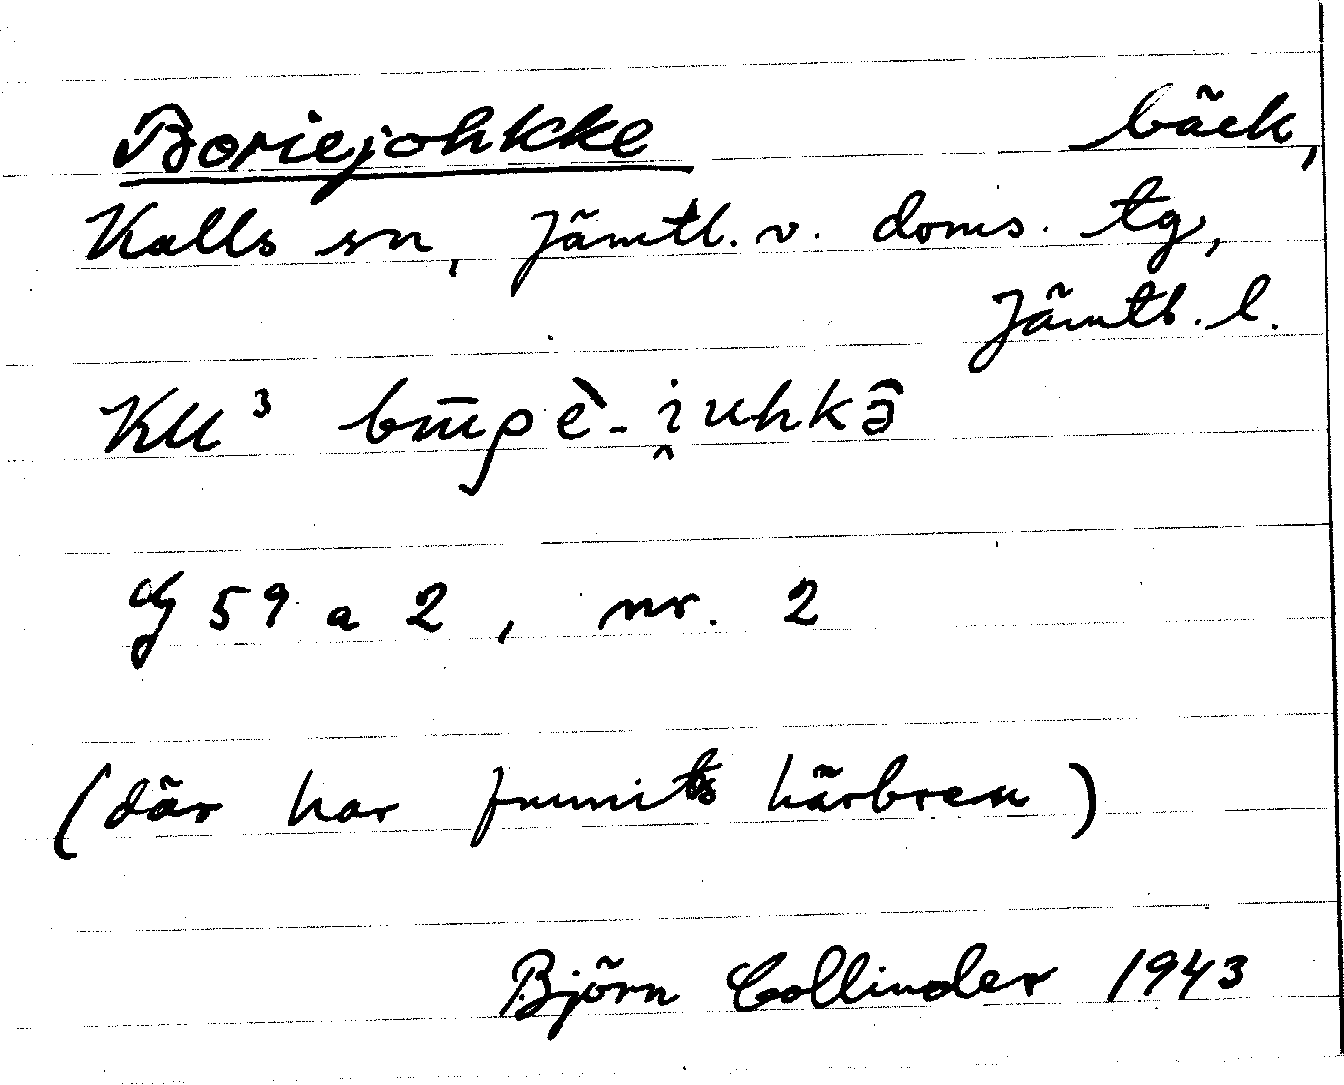 Boriejohkke bäck,
Kalls sn, Jämtl. v. doms. tg,
Jämtl. l.
KU³
59 a 2, nr. 2
(där har funnits härbren)
Björn Collinder 1943